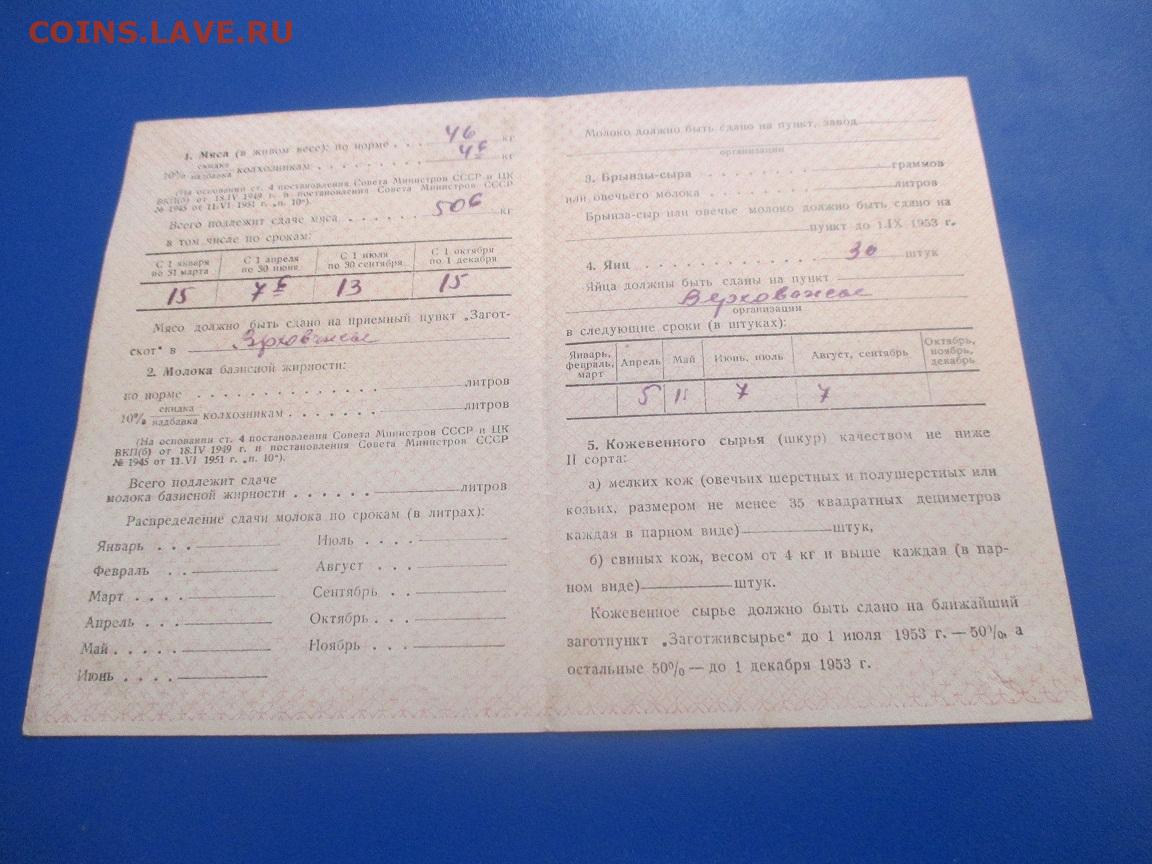 COINS.LAVE.RU
1. Мяса (в живом весе): по норме . . . 46 кг
10% скидка надбавка колхозникам . . . . . . . . 4 6 кг
(На основании ст. 4 постановления Совета Министров СССР и ЦК
ВКП(б) от 18.IV 1949 г. и постановления Совета Министров СССР
№ 1945 от 11.VI 1951 г. „п. 10“).
Всего подлежит сдаче мяса . . . . . . . 50 6 кг
в том числе по срокам:
С 1 января по 31 марта
С 1 апреля по 30 июня
С 1 июля по 30 сентября
С 1 октября по 1 декабря
15 7 6 13 15
Мясо должно быть сдано на приемный пункт „Загот-
скот“ в Верховажье
2. Молока базисной жирности:
по норме . . . . . . . . . . . . . литров
10% скидка надбавка колхозникам . . . . . . . литров
(На основании ст. 4 постановления Совета Министров СССР и ЦК
ВКП(б) от 18.IV 1949 г. и постановления Совета Министров СССР
№ 1945 от 11.VI 1951 г. „п. 10“).
Всего подлежит сдаче
молока базисной жирности . . . . . . литров
Распределение сдачи молока по срокам (в литрах):
Январь . . .
Февраль . .
Март . . . .
Апрель . . .
Май . . . . .
Июнь . . . .
Июль . . . .
Август . . .
Сентябрь . .
Октябрь . .
Ноябрь . . .
Молоко должно быть сдано на пункт, завод
организации
3. Брынзы-сыра . . . . . . . . . . . граммов
или овечьего молока . . . . . . . . . . . литров
Брынза-сыр или овечье молоко должно быть сдано на
пункт до 1.IX 1953 г.
4. Яиц . . . . . . . . . . . . . 30 штук
Яйца должны быть сданы на пункт
Верховажье
организации
в следующие сроки (в штуках):
Январь, февраль, март
Апрель
Май
Июнь, июль
Август, сентябрь
Октябрь, ноябрь, декабрь
5 11 7 7
5. Кожевенного сырья (шкур) качеством не ниже
II сорта:
а) мелких кож (овечьих шерстных и полушерстных или
козьих, размером не менее 35 квадратных дециметров
каждая в парном виде) штук,
б) свиных кож, весом от 4 кг и выше каждая (в пар-
ном виде) штук.
Кожевенное сырье должно быть сдано на ближайший
заготпункт „Заготживсырье“ до 1 июля 1953 г. — 50%, а
остальные 50% — до 1 декабря 1953 г.